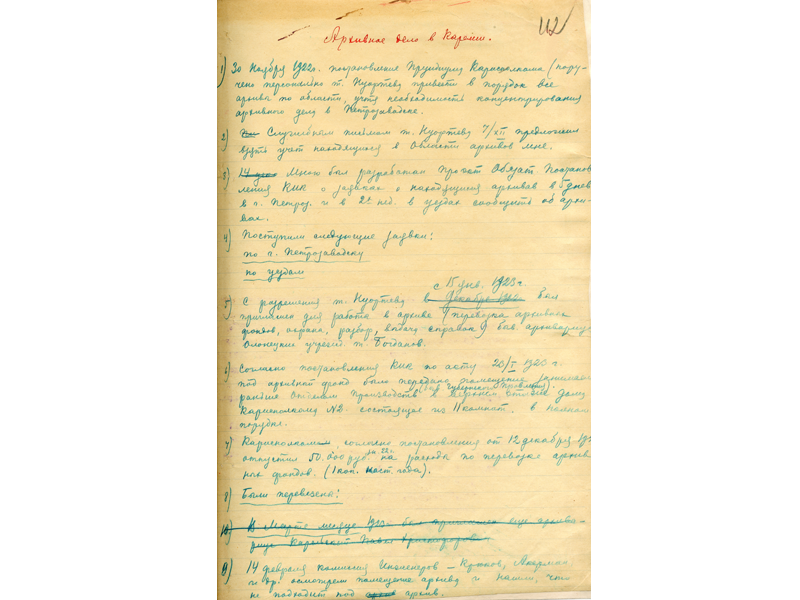 112
Архивное дело в Карелии.
1) 30 Ноября 1922г. постановление Президиума Карисполкома (пору-
чено персонально т. Нуортева привести в порядок все
архивы по области, учтя необходимость концентрирования
архивного дела в Петрозаводске.
2) Служебным письмом т. Нуортева 7/XII предложил
взять учет находящихся в Области архивов мне.
3) Мною был разработан проект Обязат Постанов
ления КИК о заявках о находящихся архивах в 5 днев
в г. Петроз. и в 2х нед. в уездах сообщить об архи-
вах.
4) Поступили следующие заявки:
по г. Петрозаводску
по уездам
с 15 янв. 1923г.
5) С разрешения т. Нуортева в декабре 1922 был
приглашен для работы в архиве (перевозка архивных
фондов, охрана, разбор, выдача справок) быв. архивариус
Олонецких учрежд. т. Богданов.
6) Согласно постановления КИК по акту 23/I 1923 г.
под архивный фонд было передано помещение
(быв. Губернское Правление).
раньше Отделом Производств в верхнем этаже дома
Карисполкома №2 состоящее из 11 комнат. в полном
порядке.
7) Карисполком, согласно постановления от 12 декабря 192
отпустил 50.000 руб. зн. 22г. на расходы по перевозке архив
ных фондов. (1 коп. наст. года).
8) Были перевезены:
10) В Марте месяце 1923 был приглашен еще архива-
риус
9) 14 февраля комиссия Инженеров – Крюков,
и др. осмотрели помещение архива и нашли, что
не подходит под архив.